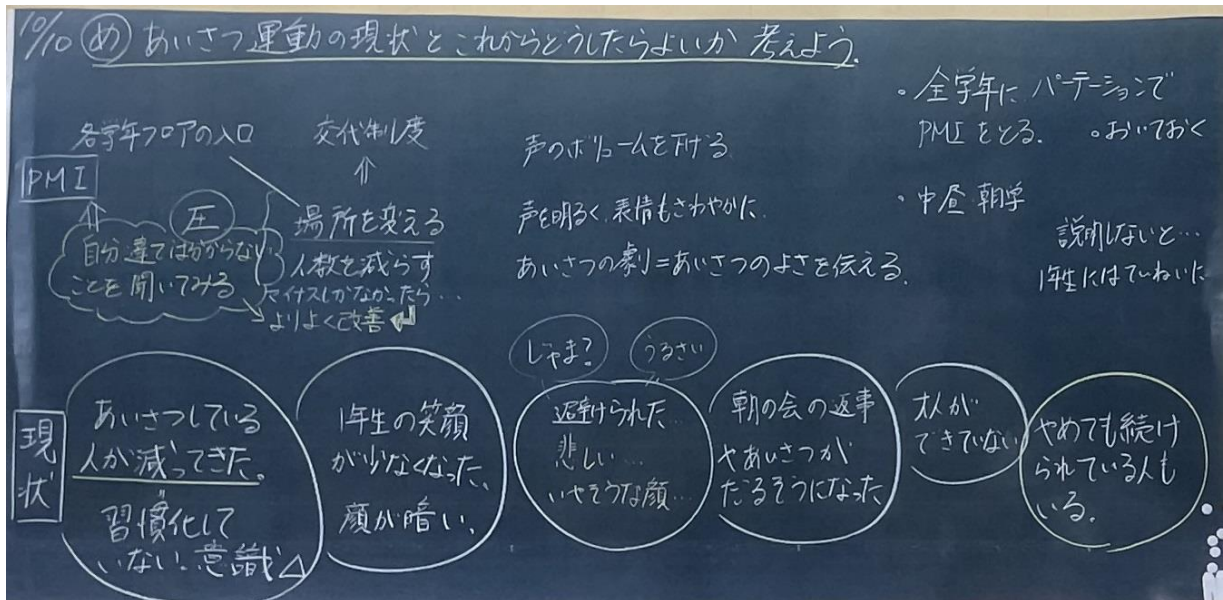 10/10 め あいさつ運動の現状とこれからどうしたらよいか 考えよう。
PMI
各学年フロアの入口
交代制度
⇑
圧
⇑
自分達ではわからない
ことを聞いてみる
場所を変える
人数を減らす
マイナスしかなかったら…
よりよく改善
声のボリュームを下げる
声を明るく、表情もさわやかに。
あいさつの劇=あいさつのよさを伝える。
・全学年に パーテーションで
PMIをとる。 ・おいておく
・中昼 朝学
説明しないと…
1年生にはていねいに
現状
あいさつしている
人が減ってきた。
習慣化して
いない。意識△
1年生の笑顔
が少なくなった。
顔が暗い。
じゃま?
うるさい
避けられた…
悲しい…
いやそうな顔…
朝の会の返事
やあいさつが
だるそうになった
大人が
できていない
やめても続け
られている人も
いる。